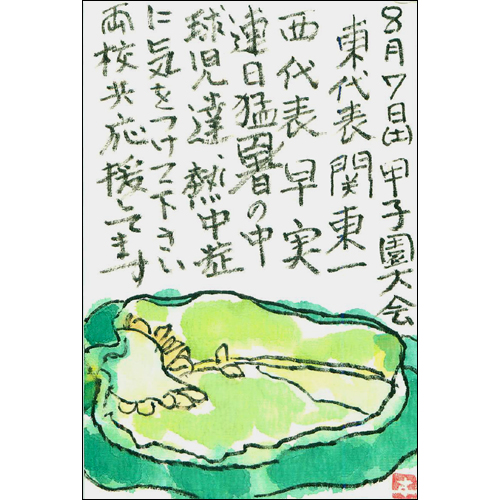 8月7日(土)甲子園大会
東代表関東一
西代表早実
連日猛暑の中
球児達、熱中症
に気をつけて下さい
両校共応援してます